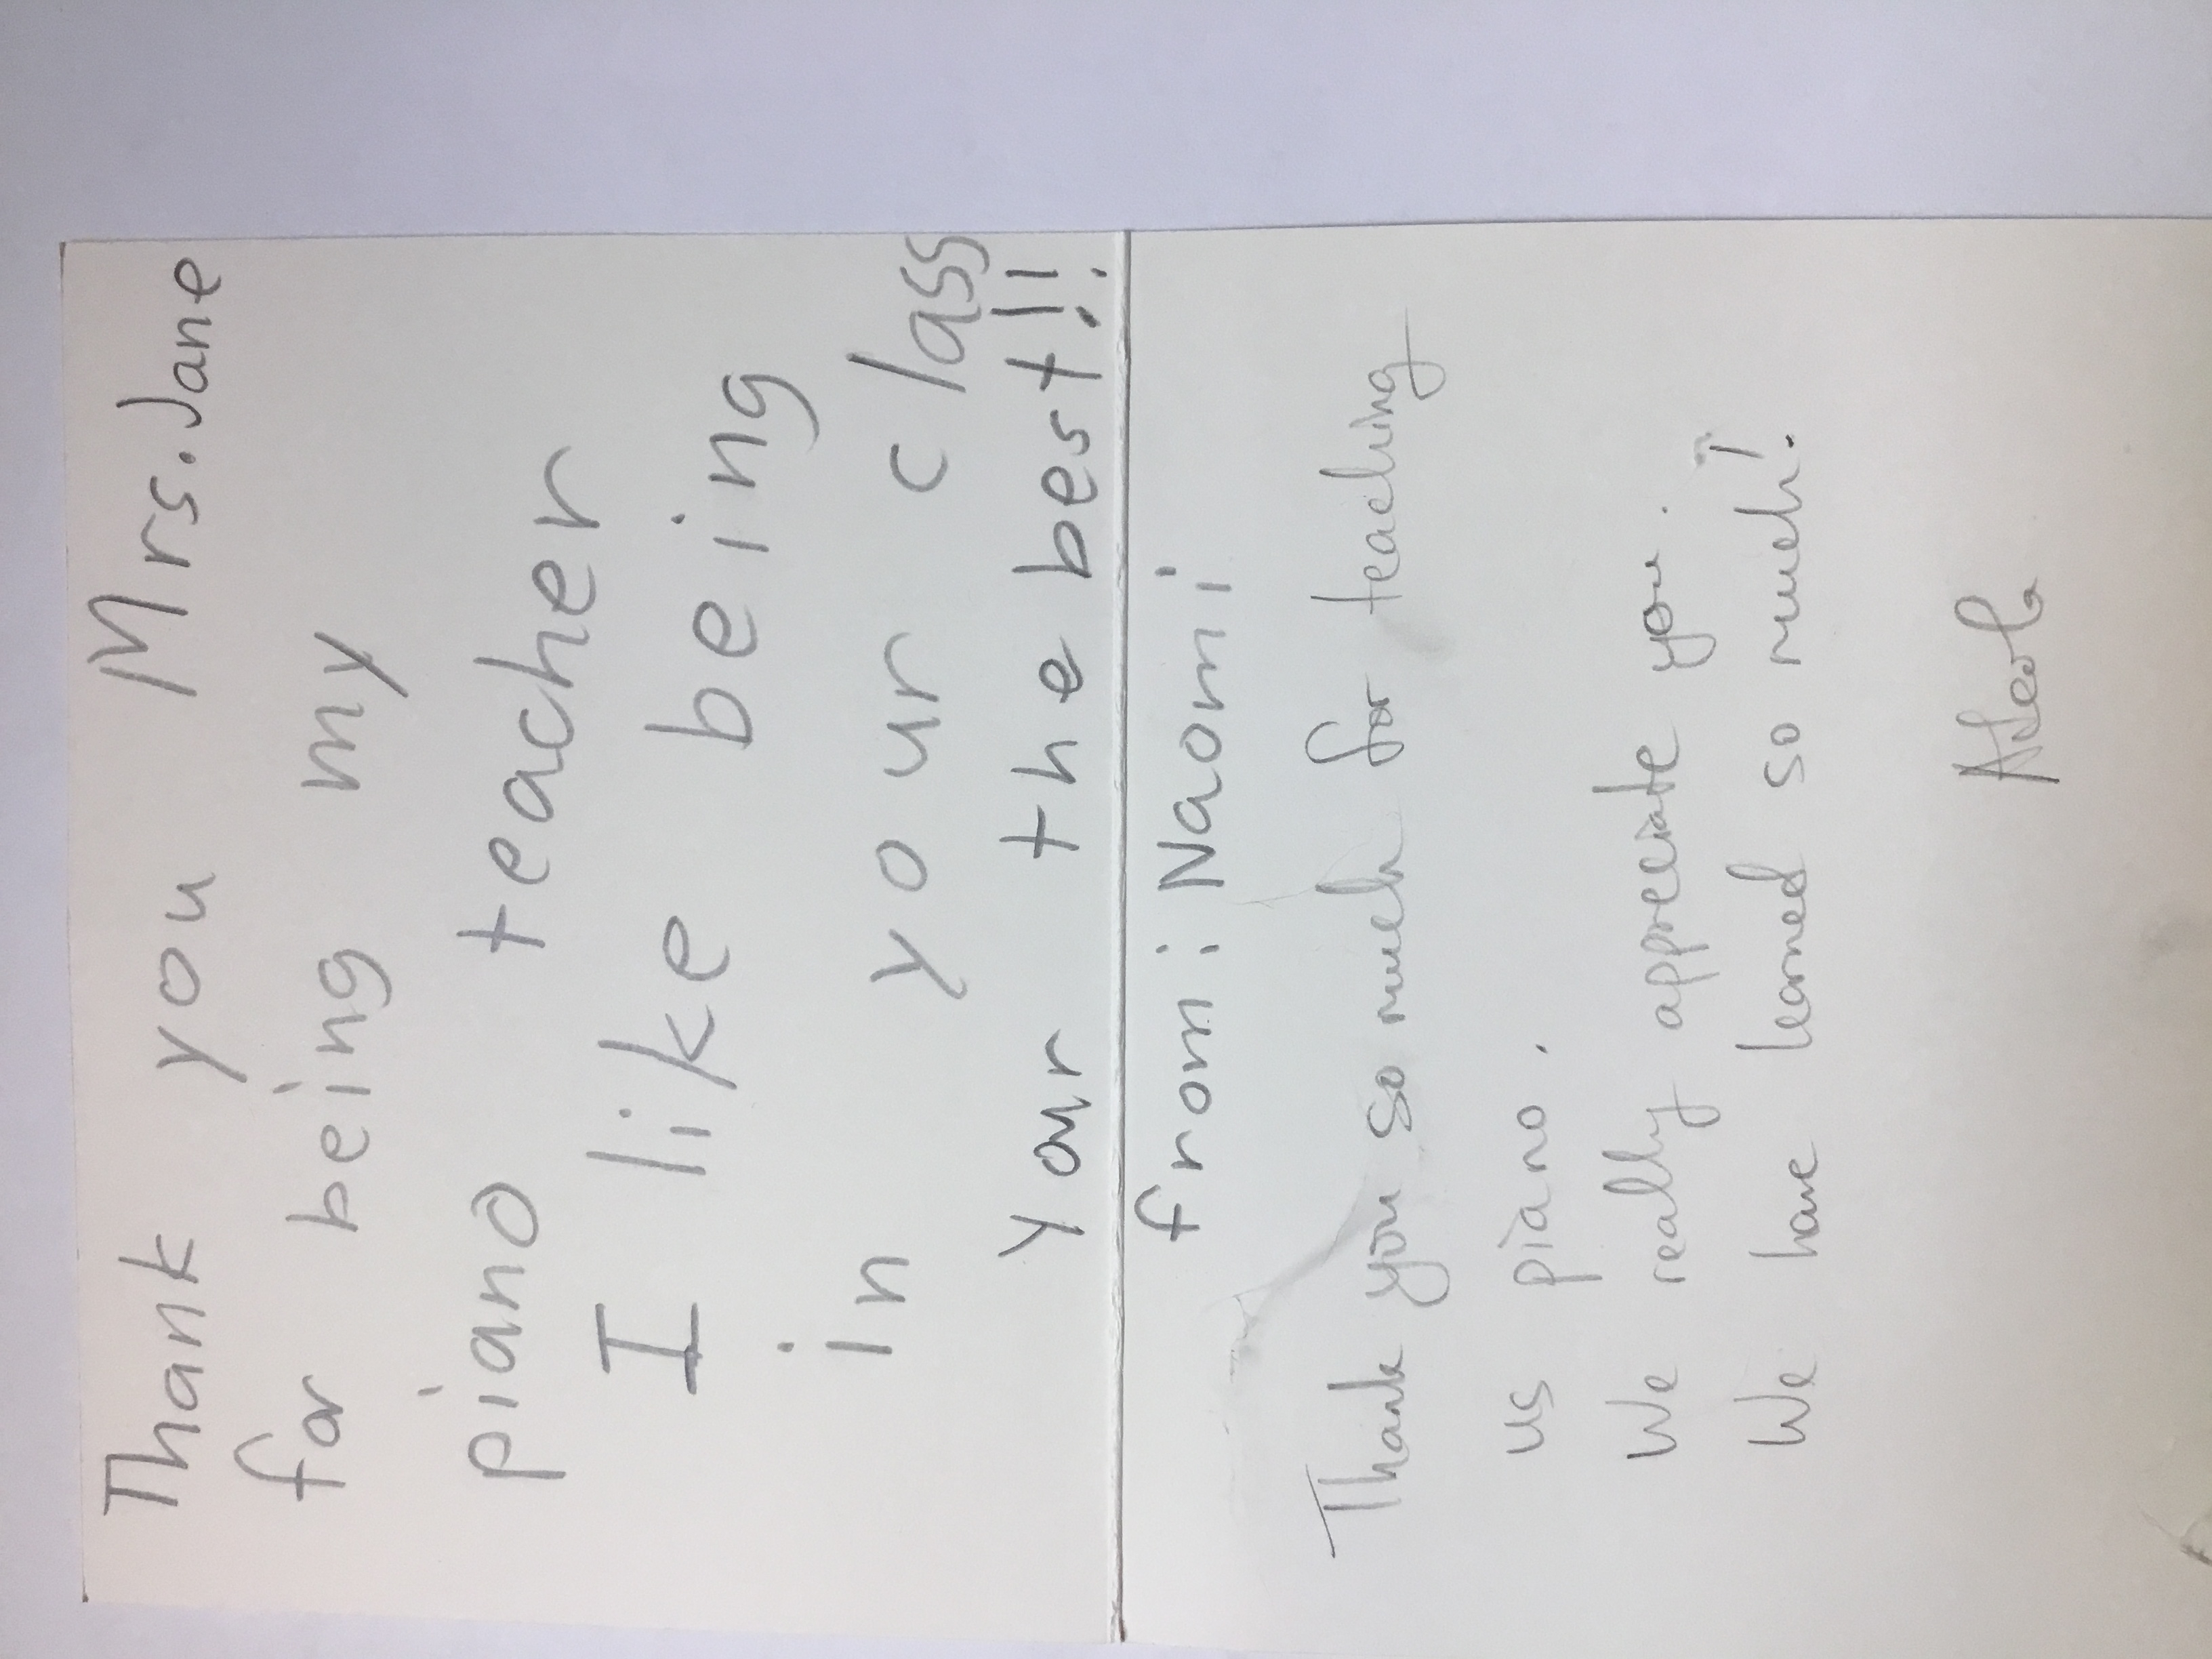 Thank you Mrs. Jane
for being my
piano teacher
I like being
in your class
your the best!!
from: Naomi
Thank you so much for teaching
us piano.
We really appreciate you.
We have learned so much!